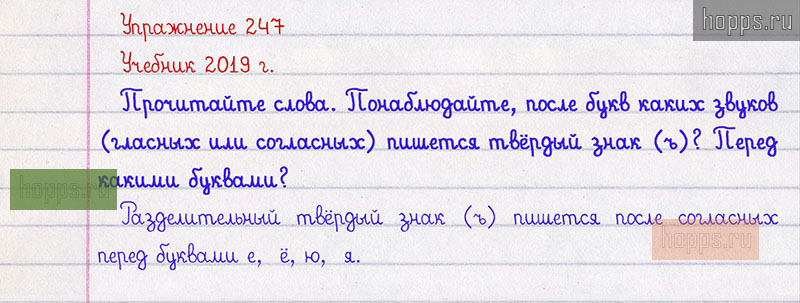 hopps.ru
Упражнение 247
Учебник 2019 г.
Прочитайте слова. Понаблюдайте, после букв каких звуков
(гласных или согласных) пишется твёрдый знак (ъ)? Перед
какими буквами?
hopps.ru
Разделительный твёрдый знак (ъ) пишется после согласных
перед буквами е, ё, ю, я.
hopps.ru